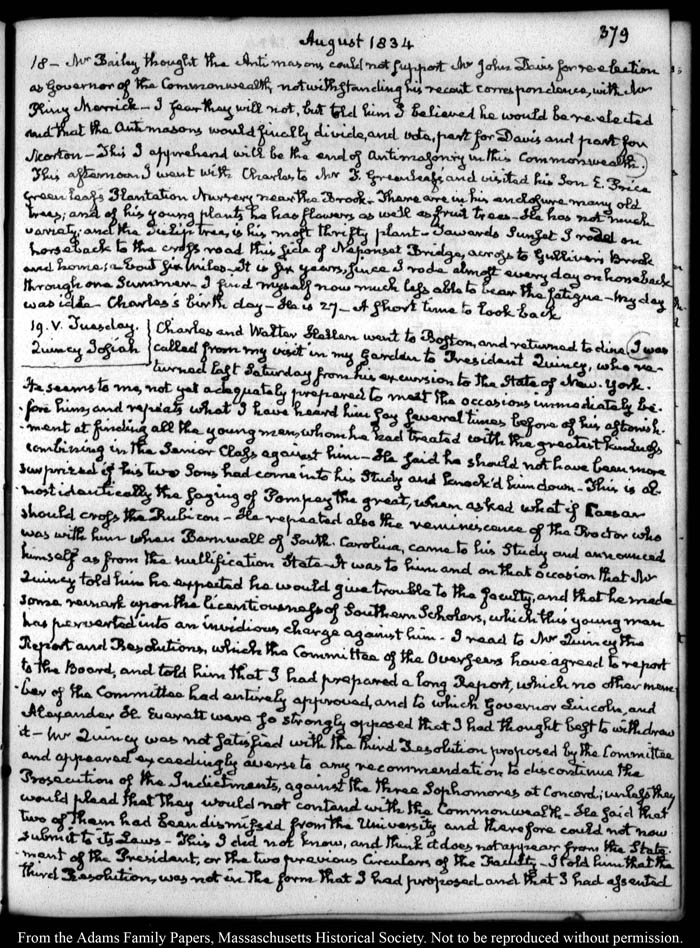 August 1834
379
18 – Mr Bailey thought the Antimasons could not support Mr John Davis for re-election
as Governor of the Commonwealth, notwithstanding his recent correspondence, with Mr
Pliny Merrick – I fear they will not, but told him I believed he would be re-elected
and that the Antimasons would finally divide, and vote, part for Davis and part for
Morton – This I apprehend will be the end of Antimasonry in this Commonwealth.
This afternoon I went with Charles to Mr T. Greenleaf's and visited his Son E. Price
Greenleaf's Plantation Nursery near the Brook – There are in his enclosure many old
trees; and of his young plants he has flowers as well as fruit trees – He has not much
variety; and the Tulip tree, is his most thrifty plant – Towards Sunset I rode on
horseback to the cross road this side of Neponset Bridge, across to Gulliver's Brook
and home; about six miles – It is six years, since I rode almost every day on horseback
through one Summer – I find myself now much less able to bear the fatigue – My day
was idle – Charles's birth day – He is 27 – A short time to look back
19. V. Tuesday. Charles and Walter Hellen went to Boston, and returned to dine. I was
Quincy Josiah called from my visit in my Garden to President Quincy, who re-
turned last Saturday from his excursion to the State of New-York.
He seems to me, not yet adequately prepared to meet the occasions immediately be-
fore him; and repeats what I have heard him say several times before of his astonish-
ment at finding all the young men, whom he had treated with the greatest kindness
combining in the Senior Class against him – He said he should not have been more
surprized if his two Sons had come into his Study and knock'd him down – This is al-
most identically the saying of Pompey the great, when asked what if Caesar
should cross the Rubicon – He repeated also the reminiscence of the Proctor who
was with him when Barnwall of South Carolina, came to his Study and announced
himself as from the nullification State – It was to him and on that occasion that Mr
Quincy told him he expected he would give trouble to the faculty, and that he made
some remark upon the licentiousness of Southern Scholars, which this young man
has perverted into an invidious charge against him – I read to Mr Quincy the
Report and Resolutions, which the Committee of the Overseers have agreed to report
to the Board, and told him that I had prepared a long Report, which no other mem-
ber of the Committee had entirely approved, and to which Governor Lincoln, and
Alexander H. Everett were so strongly opposed that I had thought best to withdraw
it – Mr Quincy was not satisfied with the third Resolution proposed by the Committee
and appeared exceedingly averse to any recommendation to discontinue the
Prosecution of the Indictments, against the three Sophomores at Concord; unless they
would plead that they would not contend with the Commonwealth – He said that
two of them had been dismissed from the University and therefore could not now
submit to its Laws – This I did not know, and think it does not appear from the State-
ment of the President, or the two previous Circulars of the Faculty – I told him that the
third Resolution, was not in the form that I had proposed and that I had assented
From the Adams Family Papers, Massachusetts Historical Society. Not to be reproduced without permission.